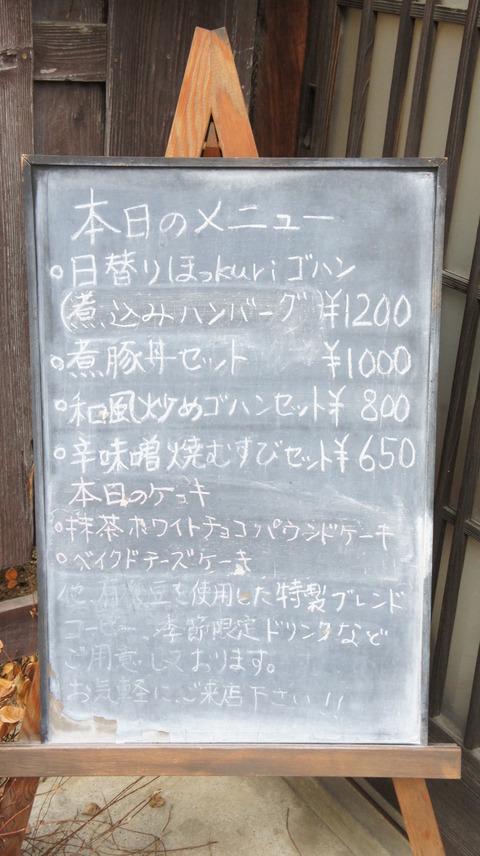 本日のメニュー
○日替りほっkuriゴハン
(煮込みハンバーグ)¥1200
○煮豚丼セット ¥1000
○和風炒めゴハンセット¥ 800
○辛味噌焼むすびセット¥650
本日のケーキ
○抹茶ホワイトチョコパウンドケーキ
○ベイクドチーズケーキ
他、有機豆を使用した特製ブレンド
コーヒー、季節限定ドリンクなど
ご用意しております。
お気軽にご来店下さい!!